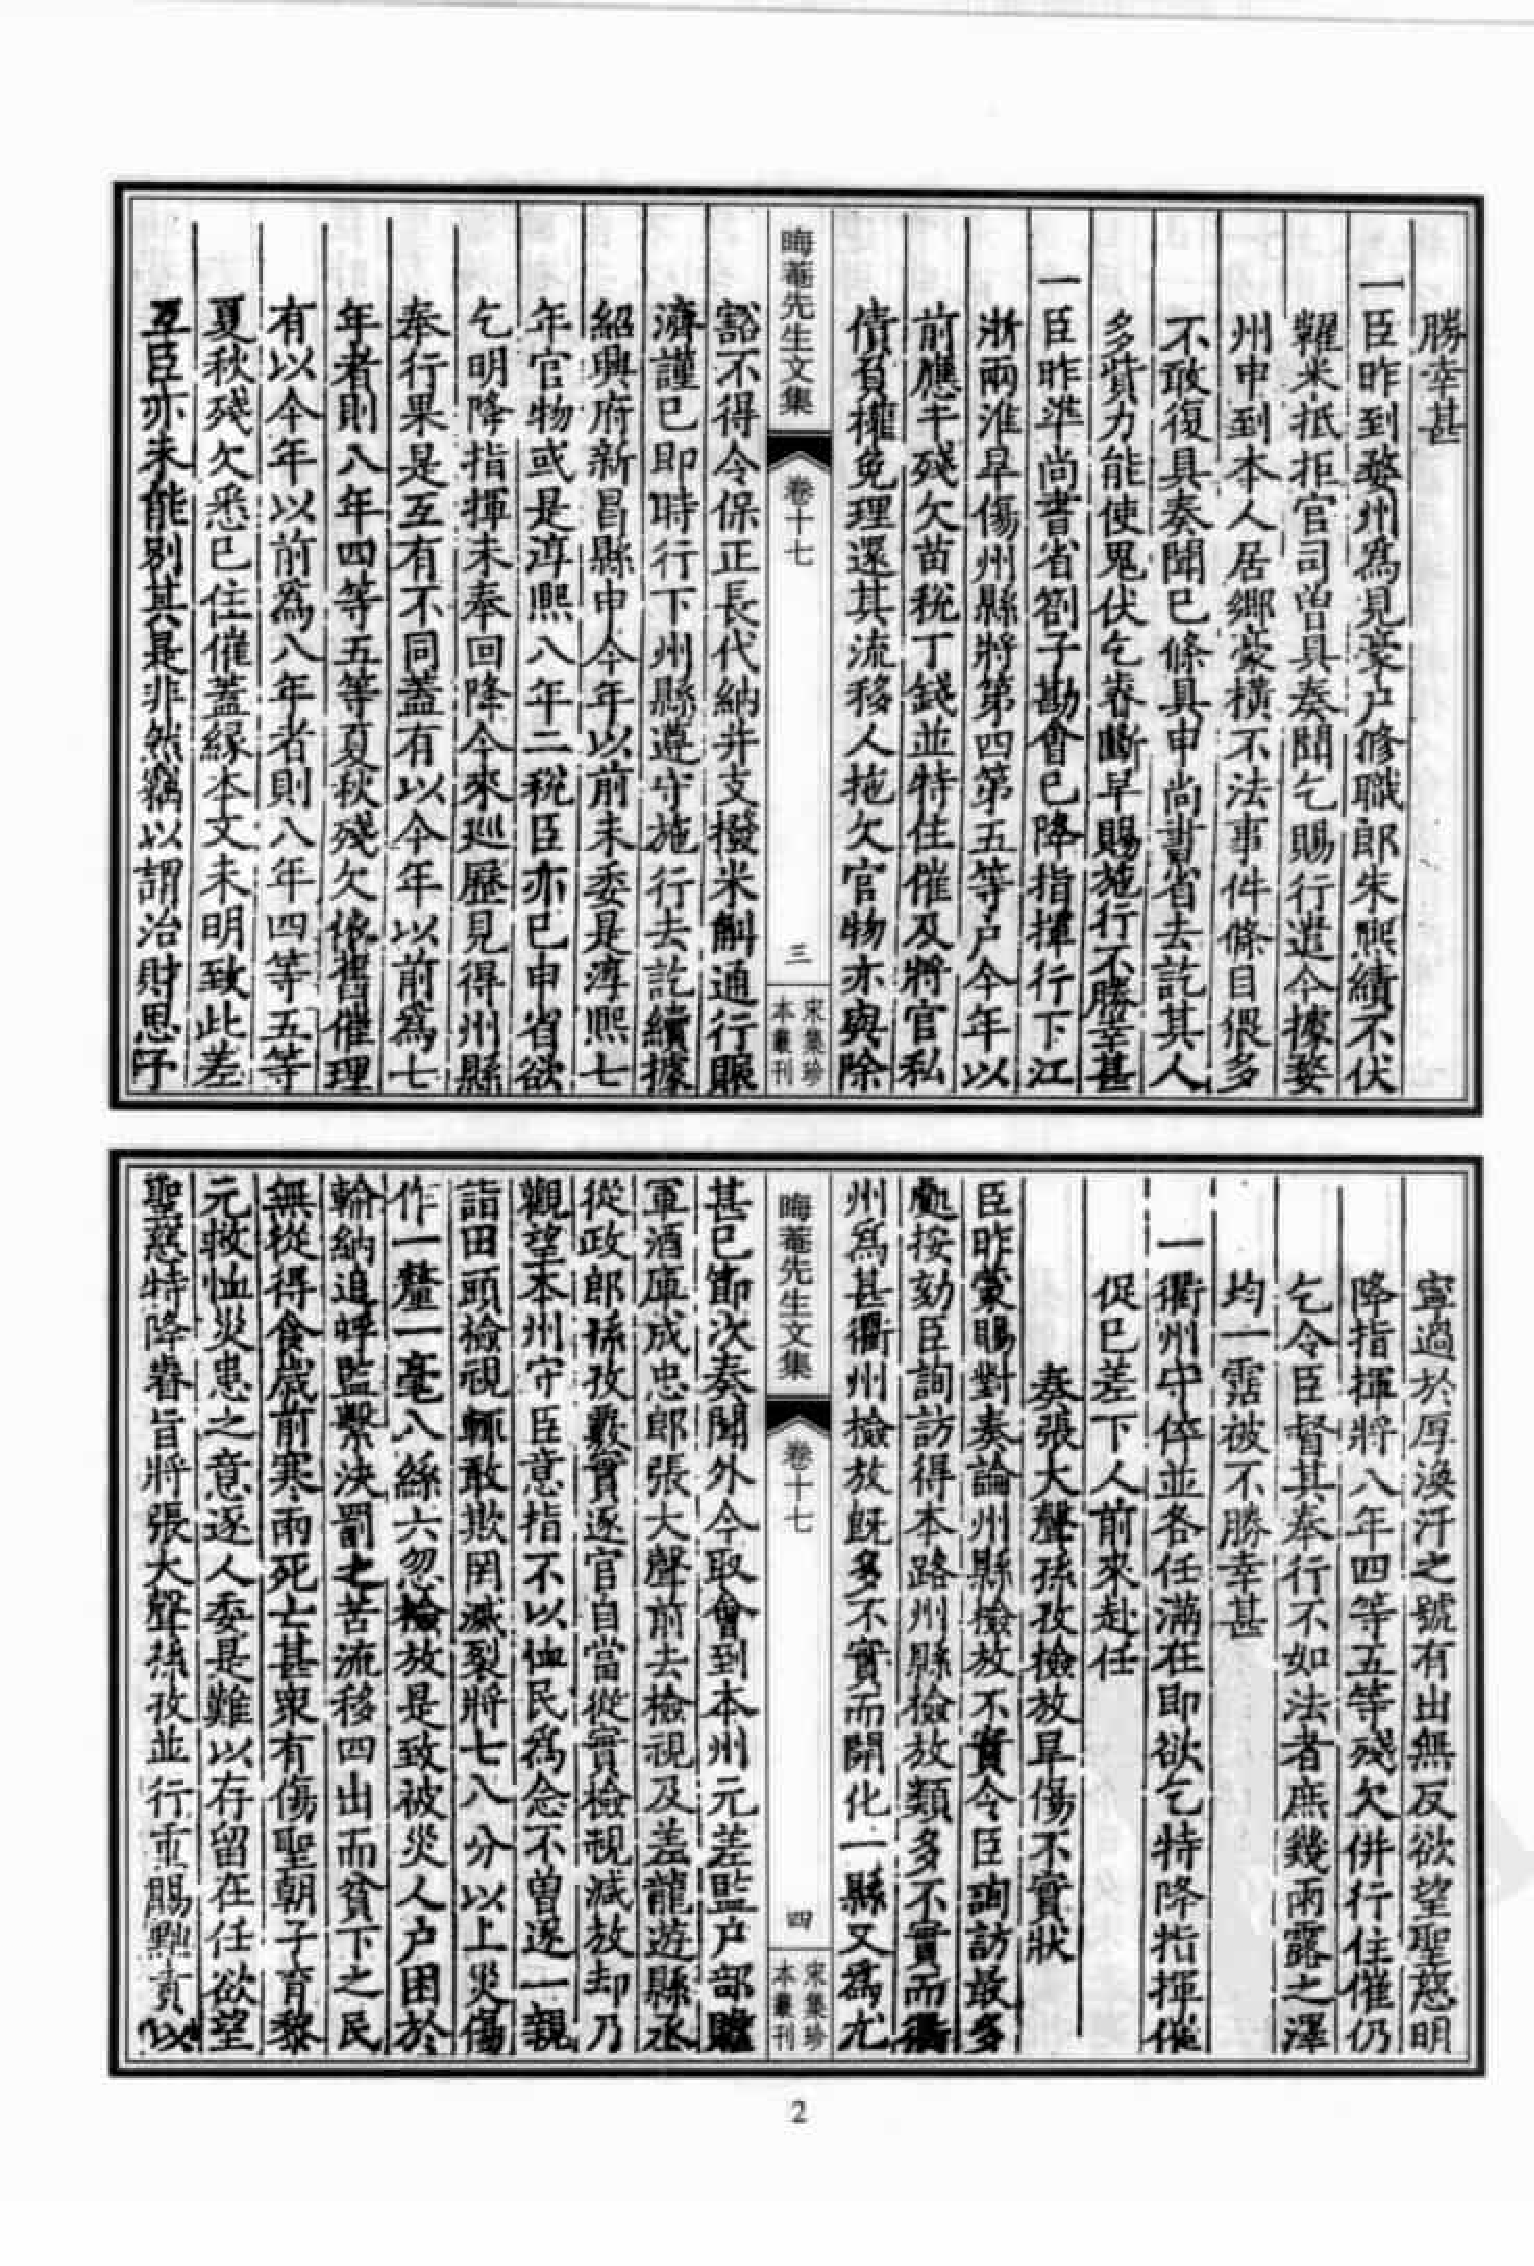 勝幸甚
一臣昨到婺州爲見豪户修職郎朱熙績不伏
糶米抵拒官司曽具奏聞乞賜行遣今據婺
州申到本人居鄉豪橫不法事件條目猥多
不敢復具奏聞已條具申尚書省去訖其人
多貲力能使鬼伏乞睿斷早賜施行不勝幸甚
一臣昨準尚書省劄子勘會已降指揮行下江
浙兩淮旱傷州縣將第四第五等户今年以
前應干殘欠苗稅丁錢並特住催及將官私
債負權免理還其流移人拖欠官物亦與除
晦菴先生文集
卷十七
三
宋集珍
本叢刊
豁不得令保正長代納并支撥米斛通行賑
濟謹已即時行下州縣遵守施行去訖續據
紹興府新昌縣申今年以前未委是淳熙七
年官物或是淳熙八年二稅臣亦已申省欲
乞明降指揮未奉回降今來巡歷見得州縣
奉行果是互有不同蓋有以今年以前爲七
年者則八年四等五等夏秋殘欠依舊催理
有以今年以前爲八年者則八年四等五等
夏秋殘欠悉已住催蓋緣本文未明致此差
互臣亦未能别其是非然竊以謂治財思予
寧過於厚渙汗之號有出無反欲望聖慈明
降指揮將八年四等五等殘欠併行住催仍
乞令臣督其奉行不如法者庶幾雨露之澤
均一霑被不勝幸甚
一衢州守倅並各任滿在即欲乞特降指揮催
促已差下人前來赴任
奏張大聲孫孜檢放旱傷不實狀
臣昨蒙賜對奏論州縣檢放不實令臣詢訪最多
處按劾臣詢訪得本路州縣檢放類多不實而衢
州爲甚衢州檢放旣多不實而開化一縣又爲尤
晦菴先生文集
卷十七
四
宋集珍
本叢刊
甚已節次奏聞外今取會到本州元差監户部贍
軍酒庫成忠郎張大聲前去檢視及差龍遊縣丞
從政郎孫孜覈實逐官自當從實檢視減放却乃
觀望本州守臣意指不以恤民爲念不曽逐一親
詣田頭檢視輒敢欺罔滅裂將七八分以上災傷
作一釐一毫八絲六忽檢放是致被災人户困於
輸納追呼監繫決罰之苦流移四出而貧下之民
無從得食歲前寒雨死亡甚衆有傷聖朝子育黎
元救恤災患之意逐人委是難以存留在任欲望
聖慈特降睿旨將張大聲孫孜並行重賜黜責以
2